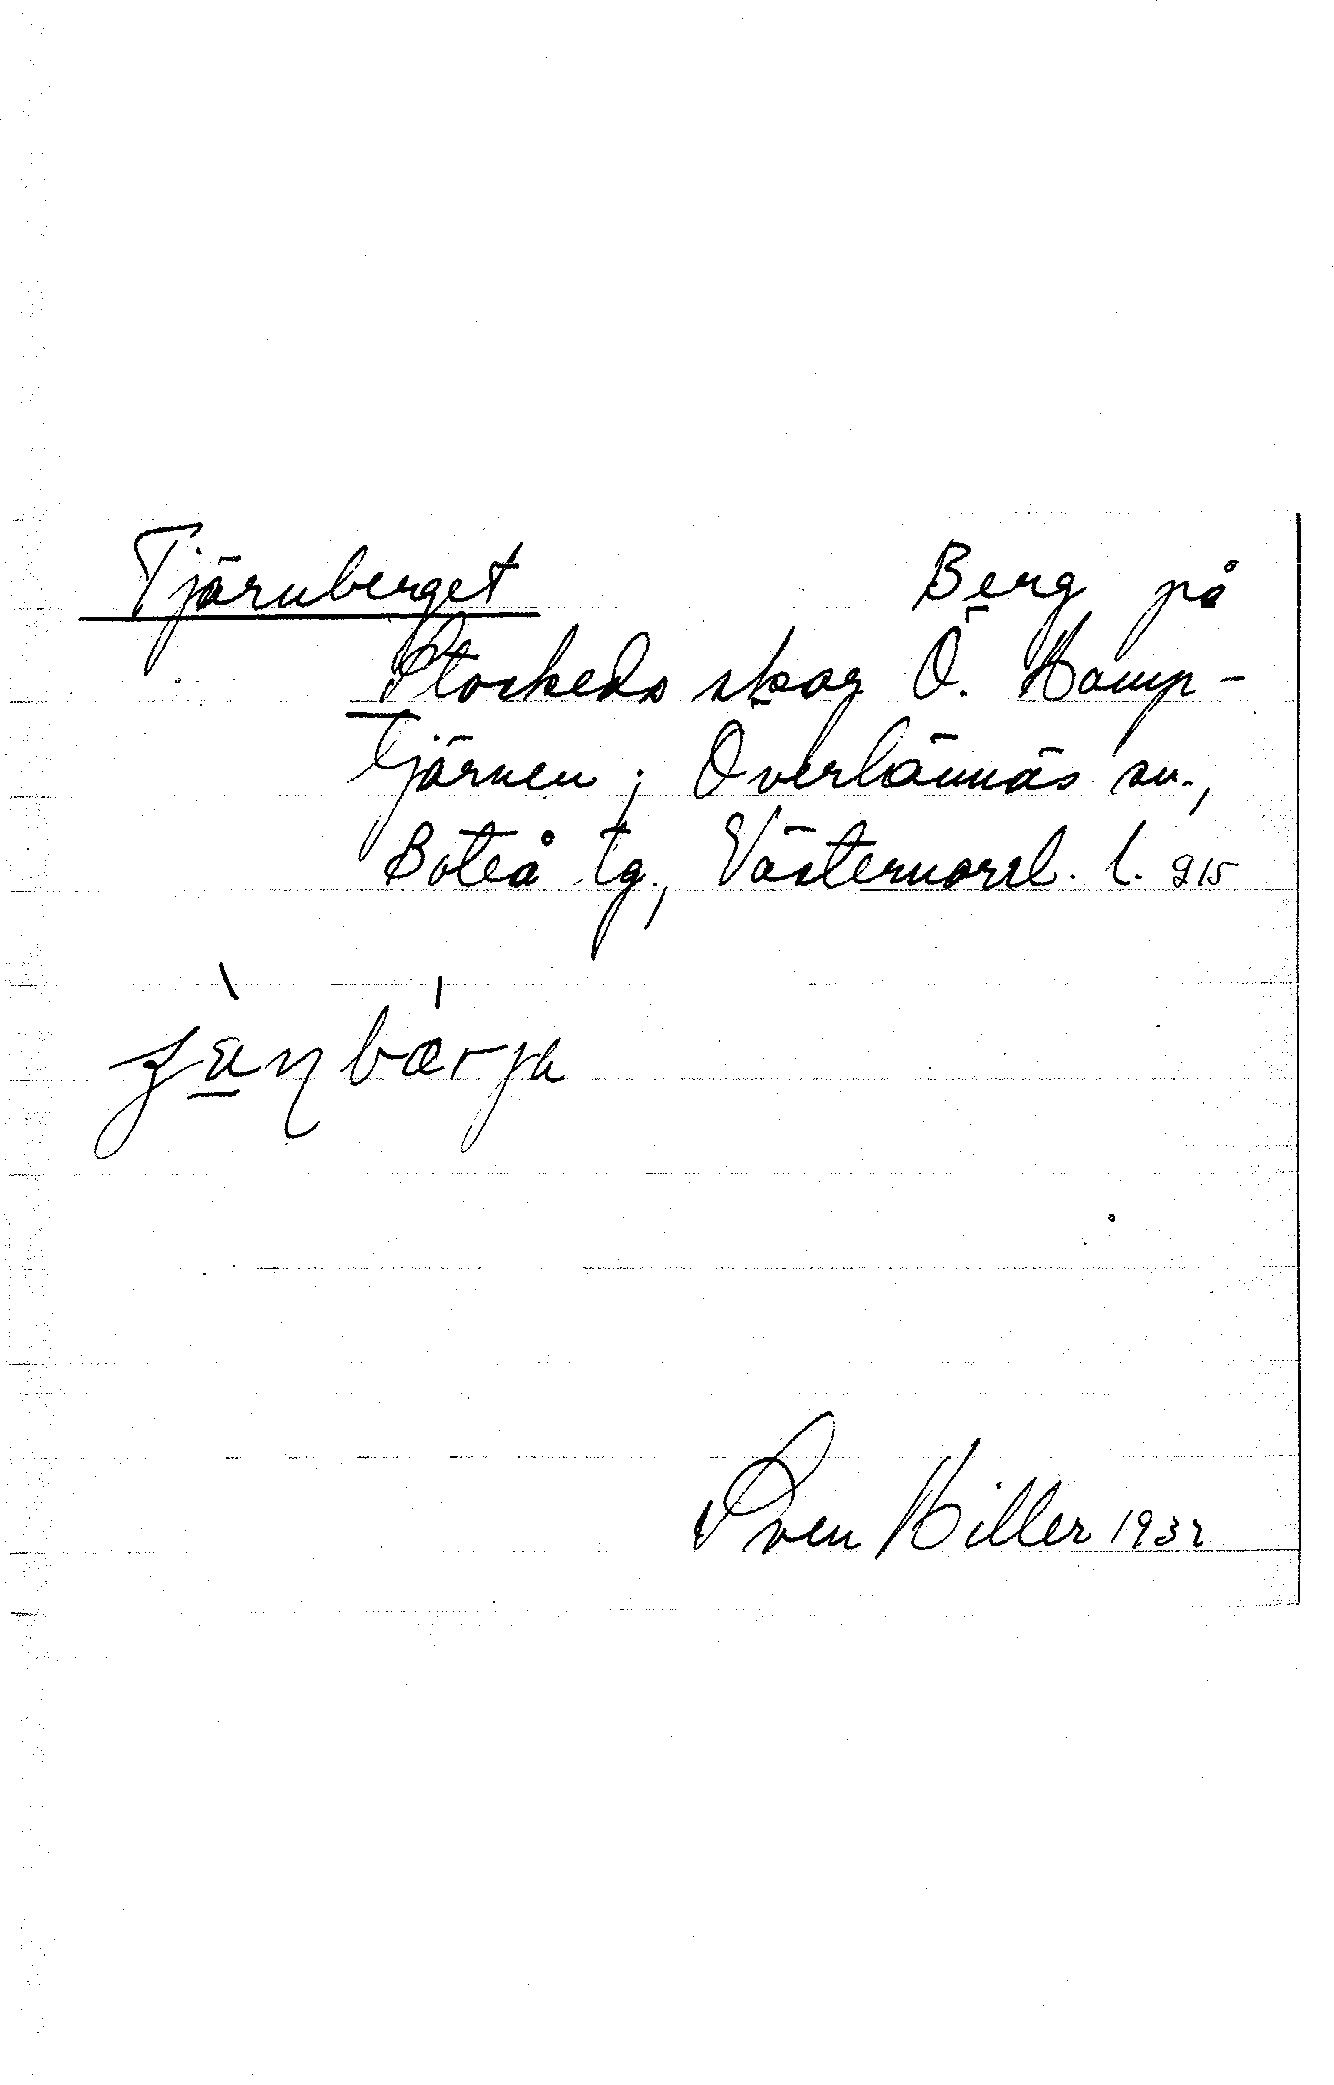 Tjärnberget Berg på
Stockeds skog Ö. Hamp-
tjärnen; Överlännäs sn.,
Boteå tg., Västernorrl. l. 915
bærja
Sven Hiller 1932